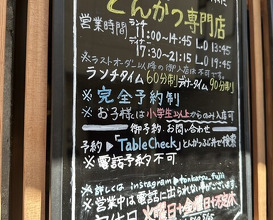 とんかつ専門店
営業時間 ランチ 11:00-14:45 L.O 13:45
ディナー 17:30-21:15 L.O 19:45
※ラストオーダー以降の御入店は不可です。
ランチタイム60分制 ディナータイム90分制
※完全予約制
※お子様は小学生以上からのみ入店可
御予約、お問い合わせ
予約▶「TableCheck」とんかつふじ井で検索
※電話予約不可
※詳しくは instagram▶tonkatsu_fujii
※営業中は電話に出られない事がございます。
定休日 ※火曜日